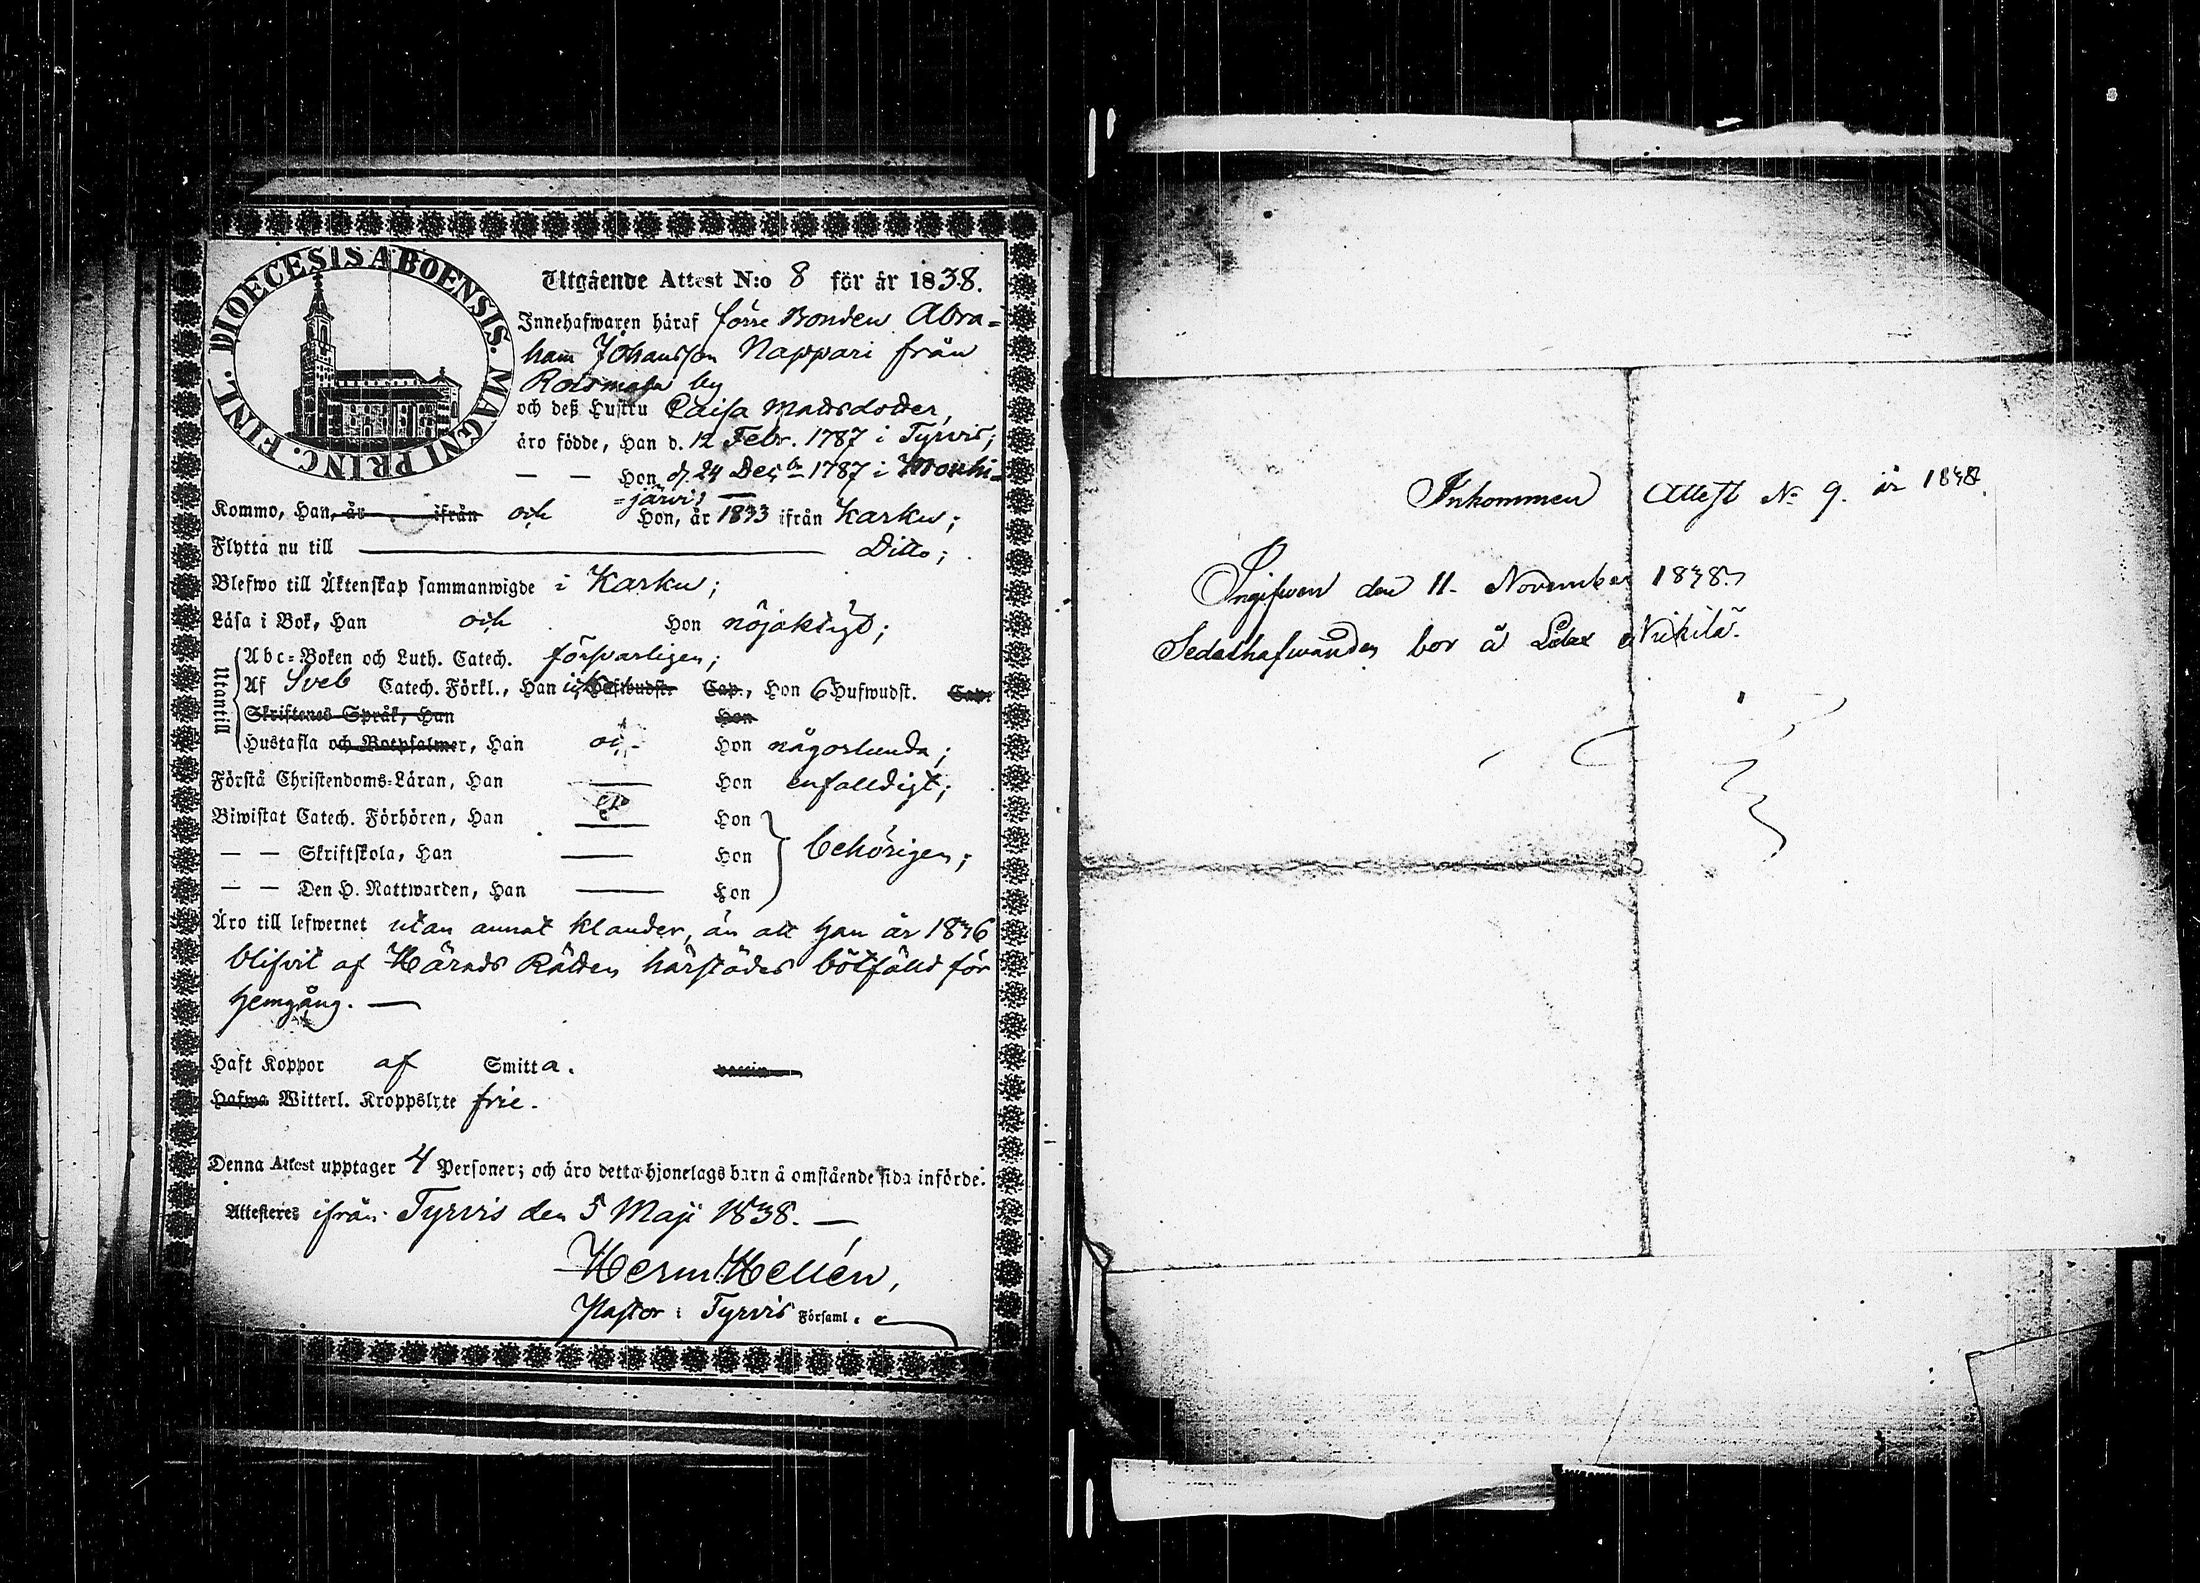 DIOECESIS ABOENSIS. MAGNI PRINC. FINL.
Utgående Attest N:o 8 för år 1838.
Innehafwaren häraf förre Bonden Abra=
ham Johansson Nappari från
Roismala by
och deß Hustru Caisa Matsdoter,
äro födde, Han d. 12 Febr. 1787 i Tyrvis;
— — Hon d. 24 Decbr 1787 i Mouhi=
=järvi —
Kommo, Han, år ifrån och Hon, år 1833 ifrån Karku;
Flytta nu till Ditto;
Blefwo till Äktenskap sammanwigde i Karku;
Läsa i Bok, Han och Hon nöjaktigt;
Utantill
Abc=Boken och Luth. Catech. försvarligen;
Af Sveb Catech. Förkl., Han Hufwudst. Cap., Hon 6 Hufwudst. Cap.
Skriftenes Språk, Han Hon
Hustafla och Botpsalmer, Han Hon någorlunda;
Förstå Christendoms=Läran, Han — Hon enfalldigt;
Biwistat Catech. Förhören, Han — Hon
— — Skriftskola, Han — Hon behörigen;
— — Den H. Nattwarden, Han — Hon
Äro till lefwernet utan annat klander, än att han år 1836
blifvit af Härads Rätten härstädes bötfälld för
hemgång. —
Haft Koppor af Smitta. vaccin
Hafwa Witterl. Kroppslyte frie.
Denna Attest upptager 4 Personer; och äro detta hjonelags barn å omstående sida införde.
Attesteres ifrån Tyrvis den 5 Maji 1838. —
Herm. Hellén,
Pastor i Tyrvis Församl.
Inkommen Attest No 9. år 1838.
Ingifven den 11. November 1838.
Sedelhafwanden bor å Nikilä.